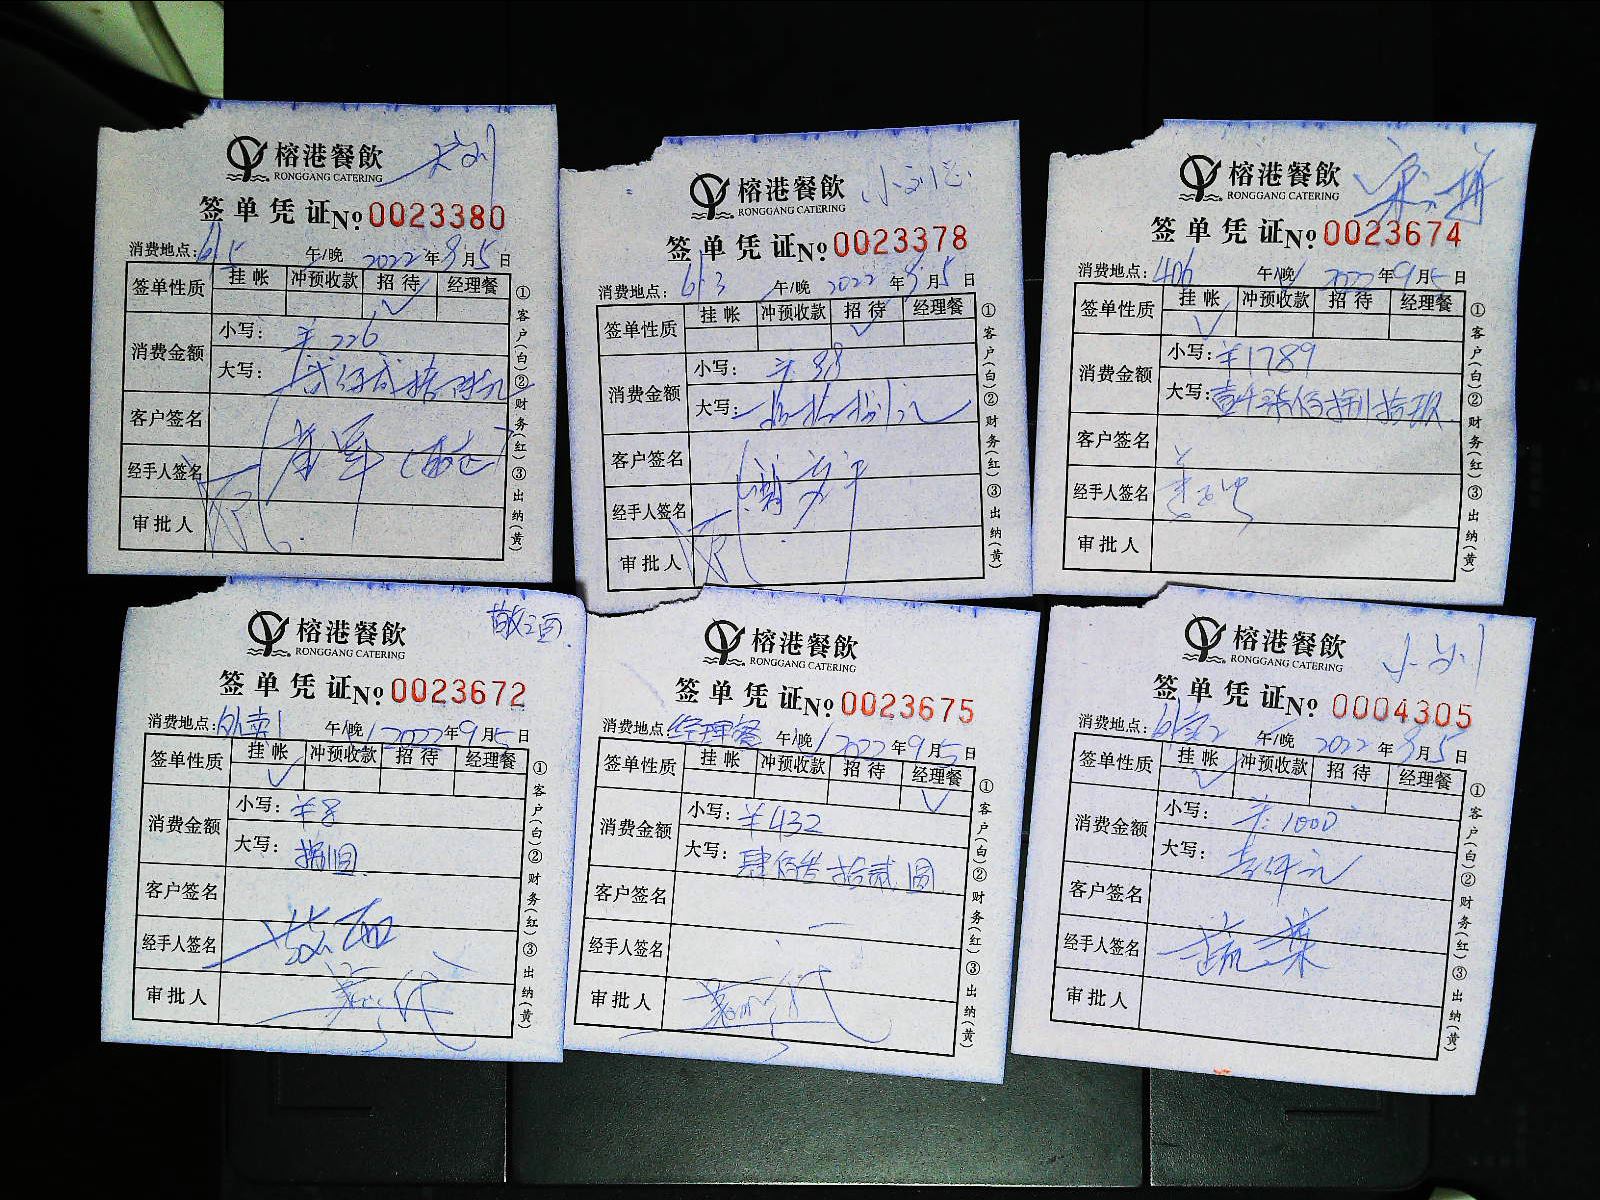 榕港餐飲
RONGGANG CATERING
签单凭证 No 0023380
消费地点: 午/晚 2022年9月5日
签单性质 挂帐 冲预收款 招待 经理餐
✓
消费金额 小写: ¥226
大写: 贰佰贰拾陆元
客户签名
经手人签名
审批人
①客户(白)②财务(红)③出纳(黄)
榕港餐飲 小刘总
RONGGANG CATERING
签单凭证 No 0023378
消费地点: 613 午/晚 2022年9月5日
签单性质 挂帐 冲预收款 招待 经理餐
✓
消费金额 小写: ¥88
大写: 捌拾捌元
客户签名
经手人签名
审批人
①客户(白)②财务(红)③出纳(黄)
榕港餐飲
RONGGANG CATERING
签单凭证 No 0023674
消费地点: 406 午/晚 2022年9月5日
签单性质 挂帐 冲预收款 招待 经理餐
✓
消费金额 小写: ¥1789
大写: 壹仟柒佰捌拾玖
客户签名
经手人签名
审批人
①客户(白)②财务(红)③出纳(黄)
榕港餐飲
RONGGANG CATERING
签单凭证 No 0023672
消费地点: 外卖1 午/晚 2022年9月5日
签单性质 挂帐 冲预收款 招待 经理餐
✓
消费金额 小写: ¥8
大写: 捌圆
客户签名
经手人签名
审批人
①客户(白)②财务(红)③出纳(黄)
榕港餐飲
RONGGANG CATERING
签单凭证 No 0023675
消费地点: 经理餐 午/晚 2022年9月5日
签单性质 挂帐 冲预收款 招待 经理餐
✓
消费金额 小写: ¥432
大写: 肆佰叁拾贰圆
客户签名
经手人签名
审批人
①客户(白)②财务(红)③出纳(黄)
榕港餐飲 小刘
RONGGANG CATERING
签单凭证 No 0004305
消费地点: 外卖2 午/晚 2022年9月5日
签单性质 挂帐 冲预收款 招待 经理餐
✓
消费金额 小写: ¥1000
大写: 壹仟元
客户签名
经手人签名
审批人
①客户(白)②财务(红)③出纳(黄)